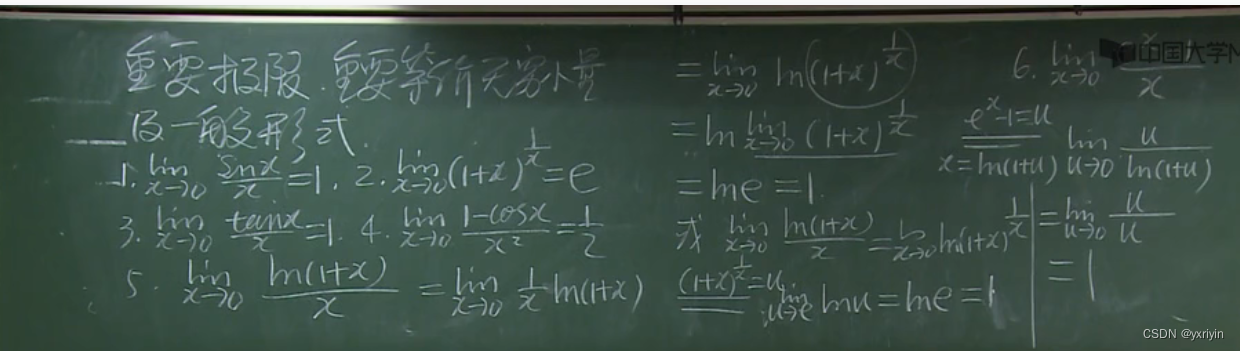 重要极限.重要等价无穷小量
及一般形式.
1. lim x→0 sinx/x =1. 2. lim x→0 (1+x)^(1/x) = e
3. lim x→0 tanx/x =1. 4. lim x→0 (1-cosx)/x² = 1/2
5. lim x→0 ln(1+x)/x = lim x→0 1/x ln(1+x)
= lim x→0 ln(1+x)^(1/x)
= ln lim x→0 (1+x)^(1/x)
= lne = 1.
或 lim x→0 ln(1+x)/x = lim x→0 ln(1+x)^(1/x)
(1+x)^(1/x)=u lim u→e lnu = lne = 1
6. lim x→0 x
e^x-1=u
x=ln(1+u) lim u→0 u/ln(1+u)
= lim u→0 u/u
= 1
中国大学M
CSDN @yxriyin